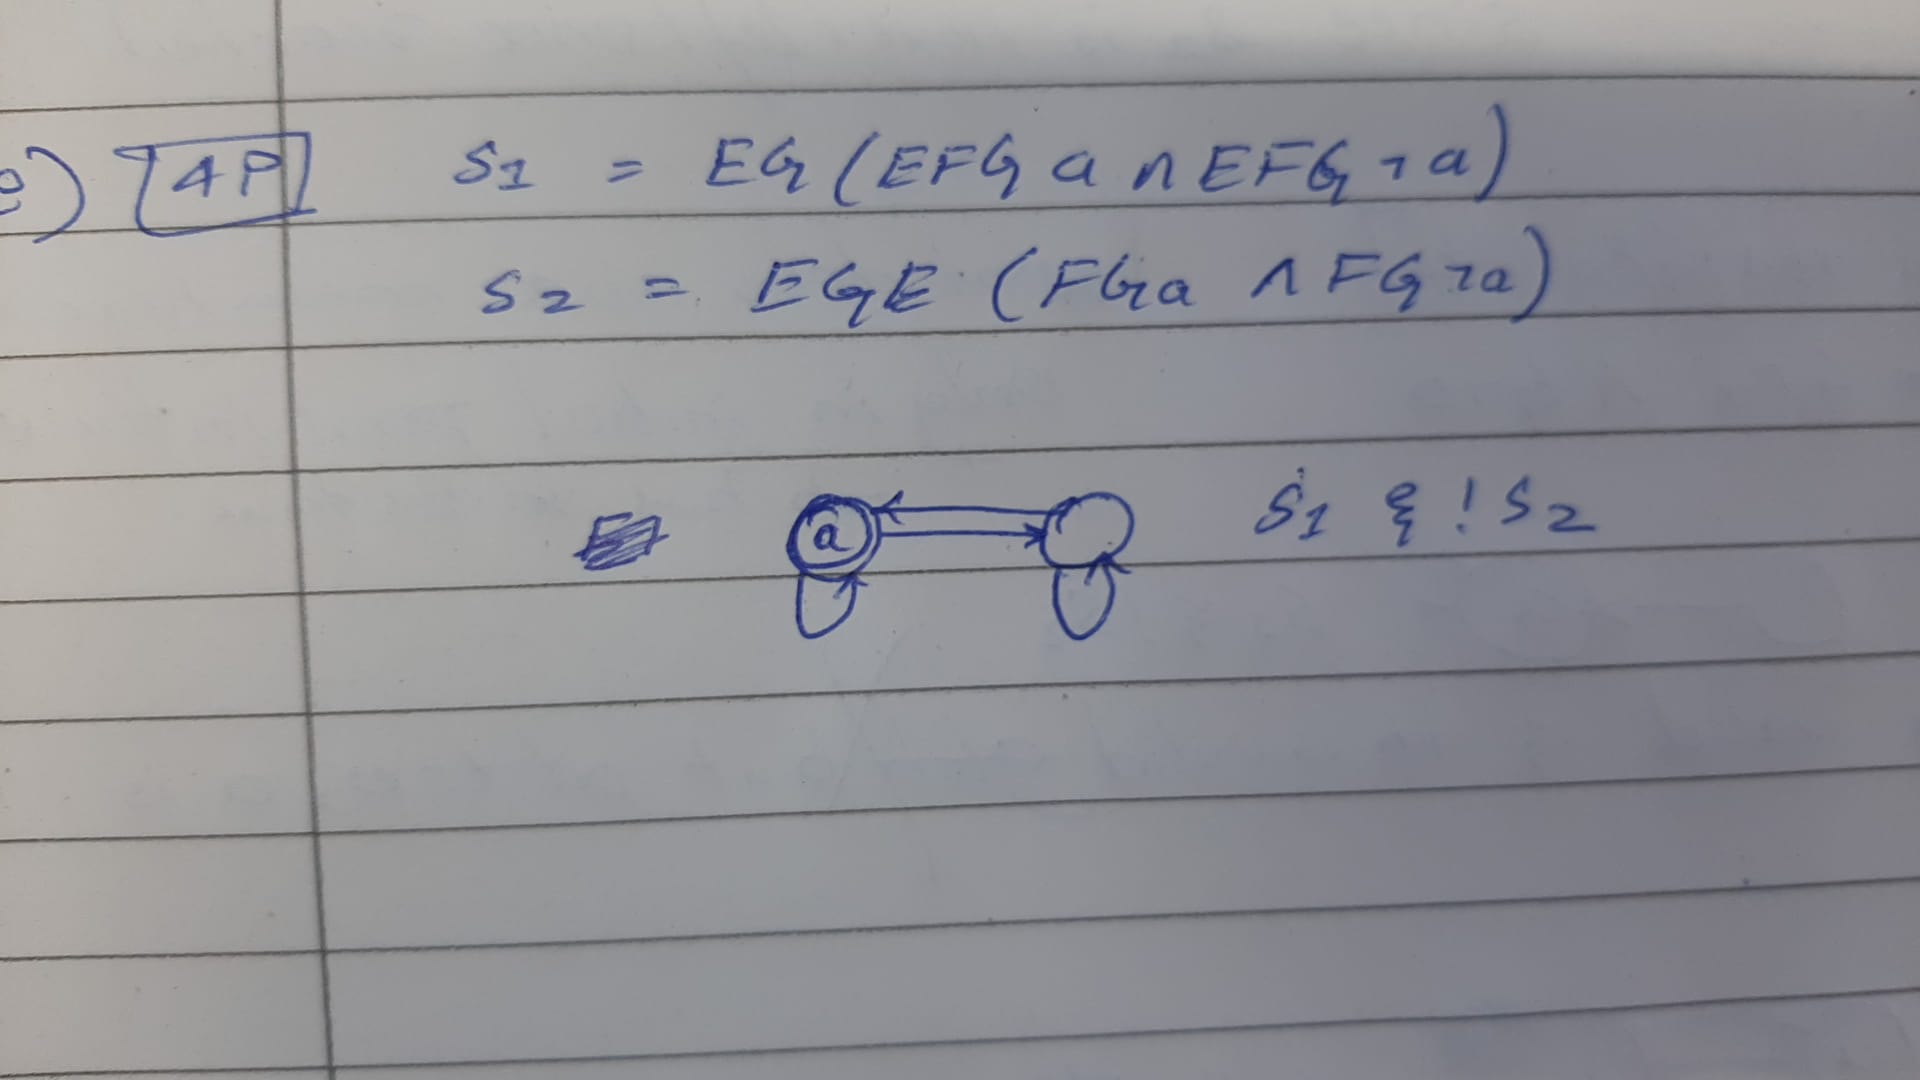 e) [4P] S1 = EG(EFG a ∧ EFG ¬a)
S2 = EGE (FGa ∧ FG¬a)
a S1 & !S2